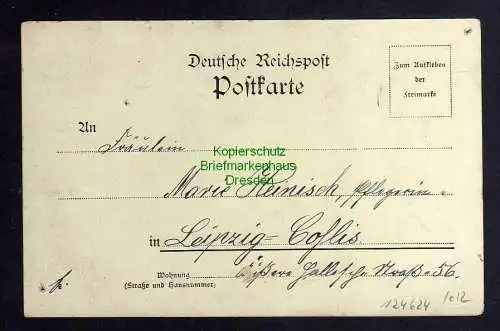 Deutsche Reichspost
Postkarte
Zum Aufkleben
der
Freimarke
An
Fräulein
Kopierschutz
Briefmarkenhaus
Dresden
Marie Heinisch, Pflegerin
in Leipzig-Gohlis
Wohnung Äußere Hallesche Straße 56.
(Straße und Hausnummer)
124624